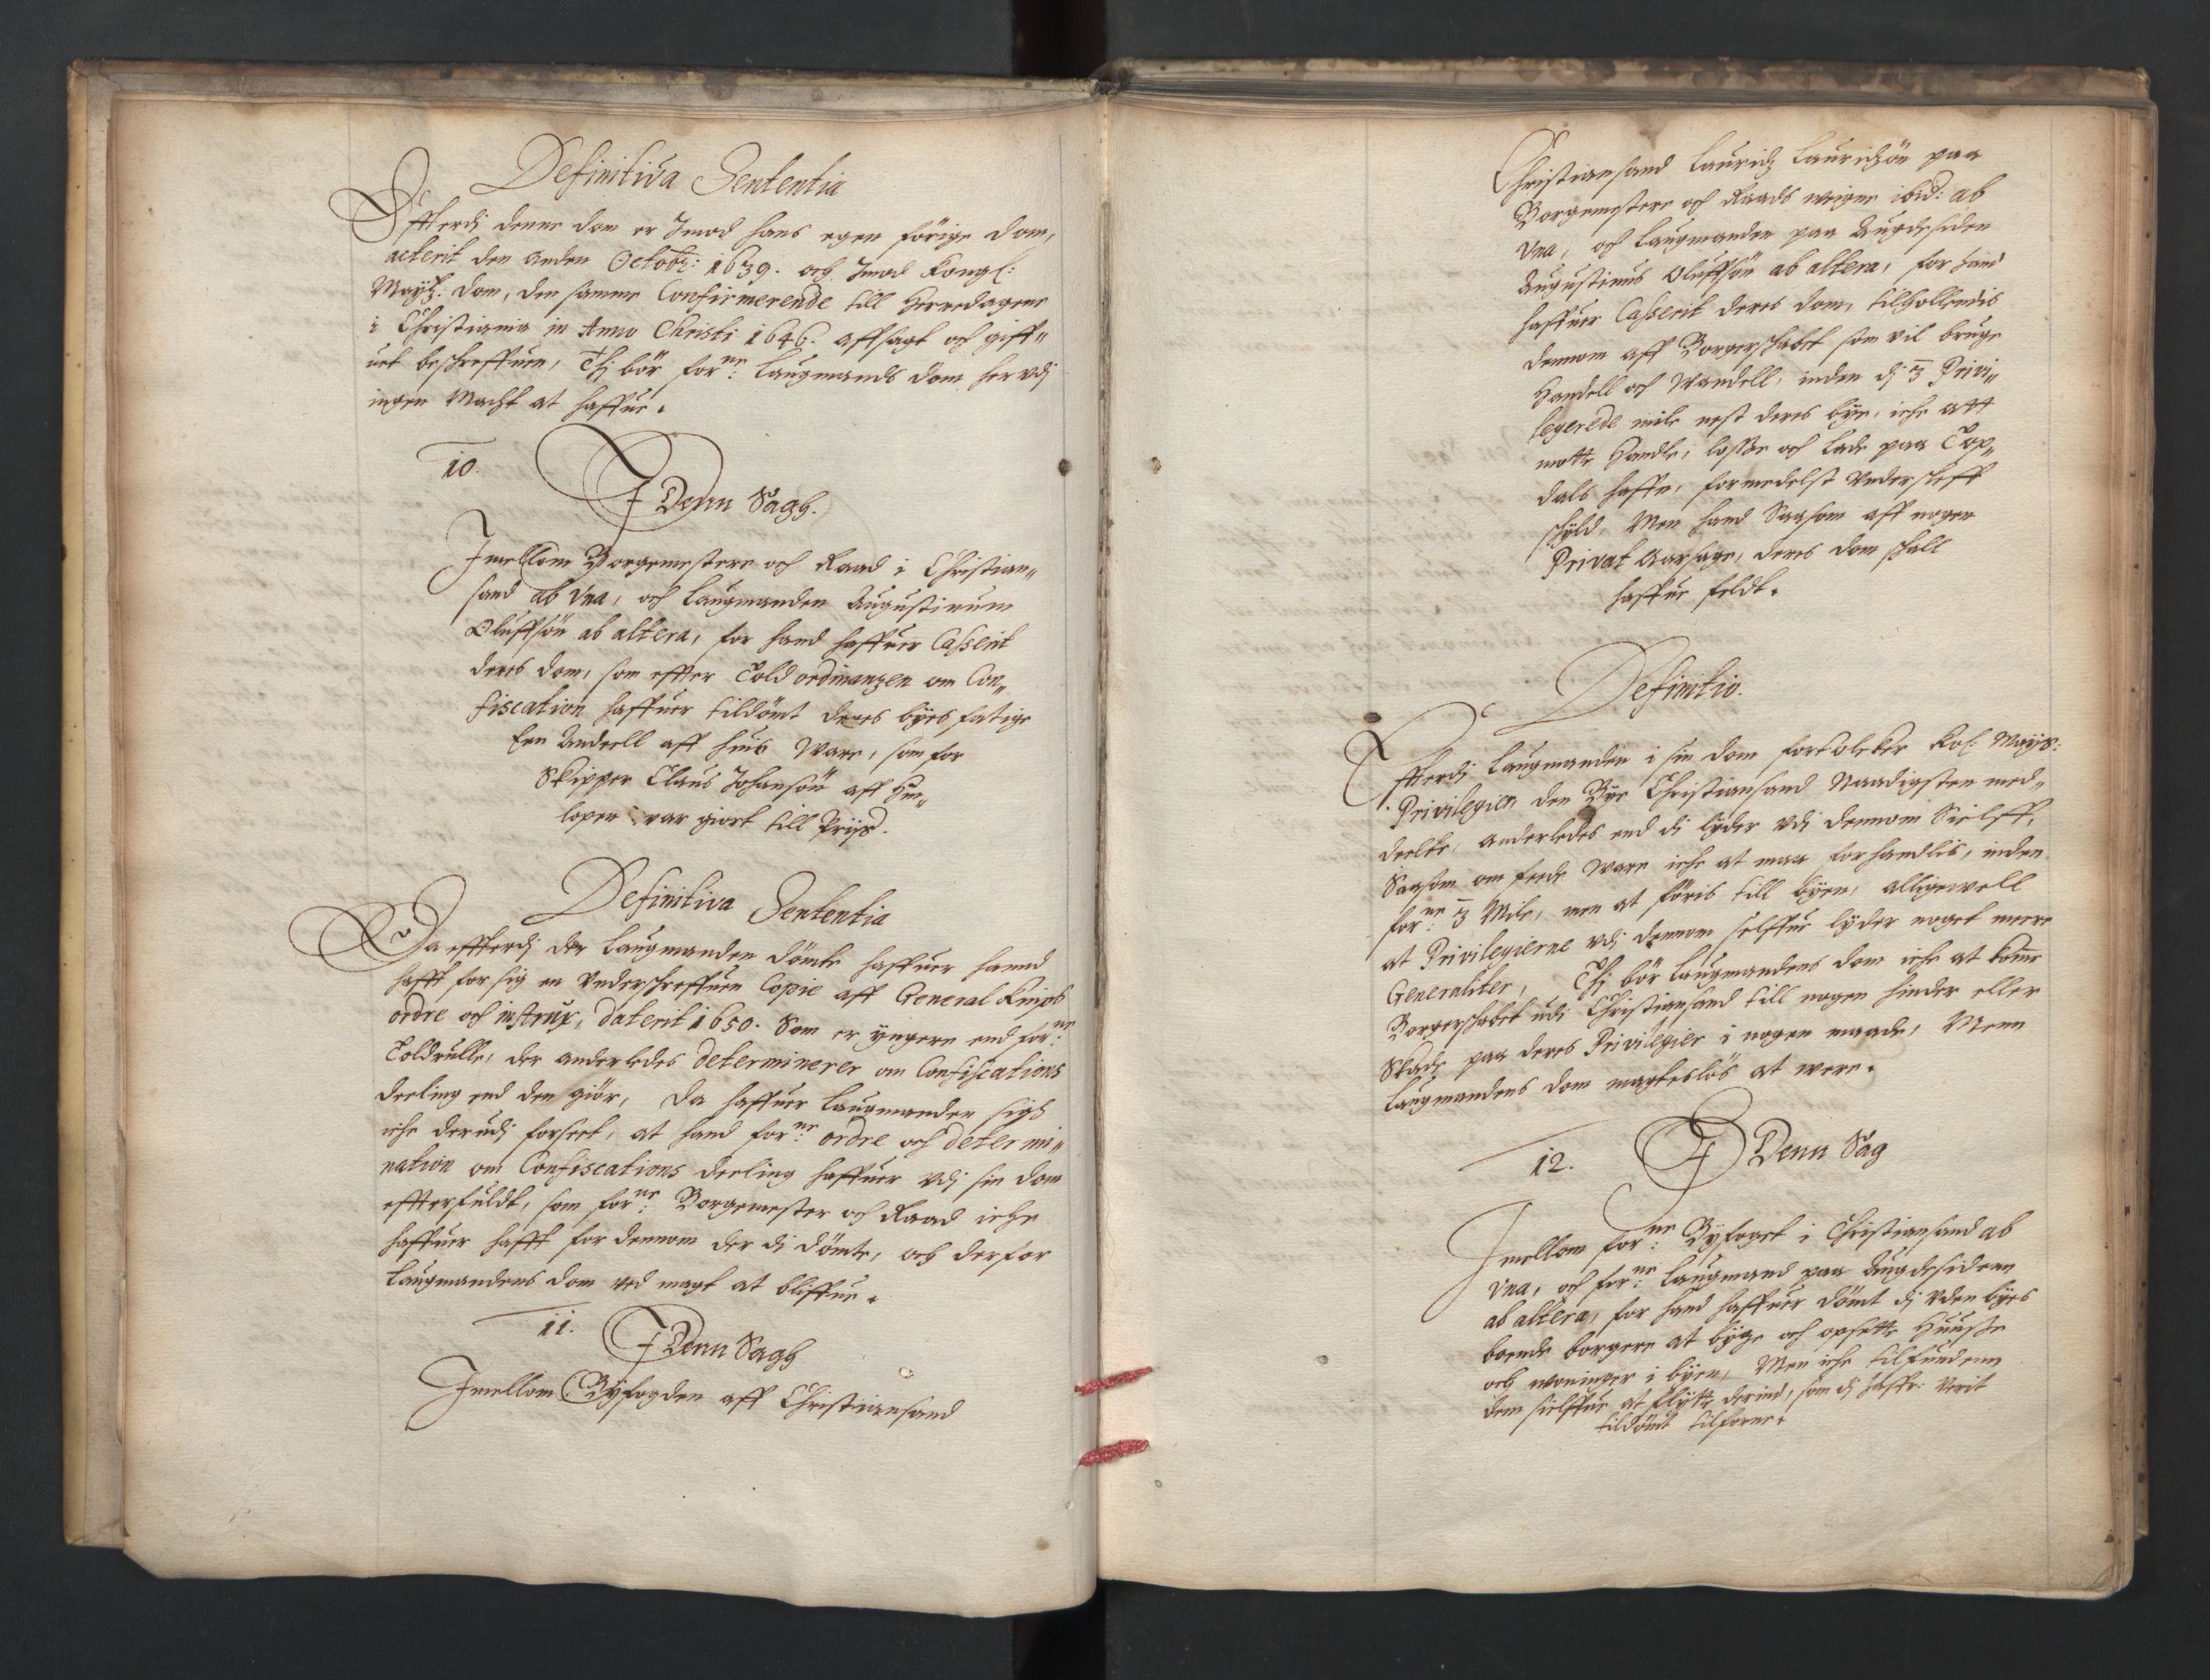 Definitiva Sententia
Effterdj denne dom er Imod hans egen förige dom,
acterit den anden Octobr: 1639. och Imod Kongl:
Mayts: dom, den samme Confirmerende till Herredagene
i Christiania in Anno Christi 1646. affsagt och giff„
uet beschreffuen, Thj bör forne: Laugmands dom her vdj
ingen Macht at haffue.
10.
I Denn Sagh.
Imellom Borgemestere och Raad i Christian„
sand ab una, och Laugmanden Augustinum
Oluffsön ab altera, for hand haffuer Casserit
deres dom, som effter Told ordinanzen om Con„
fiscation haffuer tildömt deres byes fatige
Een Andeell aff huis Ware, som for
Skipper Claus Johansön aff Hin„
lopen var giort till Prijs.
Definitiva Sententia
Da effterdj der Laugmanden dömte haffuer hannd
hafft for sig en Underschreffuen Copie aff General
ordre och instrux, daterit 1650. Som er yngere end forne:
Toldrulle, der anderledes determinerer om Confiscations
deeling end den giör, Da haffuer Laugmanden sigh
iche derudj forseet, at hand forne: ordre och determi„
nation om Confiscations deeling haffuer vdj sin dom
effterfuldt, som forne: Borgemester och Raad iche
haffuer hafft for dennom der di dömte, och derfor
Laugmandens dom ved magt at bliffue.
11.
I Denn Sagh
Imellom Byfogden aff Christiansand
Christiansand Lauridz Lauridzön paa
Borgemestere och Raads weigne ibid: ab
una, och Laugmanden paa Augdesiden
Augustinus Oluffsön ab altera, for hand
haffuer Casserit deres dom, tilholdendis
dennom aff Borgerschabet som vil bruge
Handell och Wandell, inden dj 3 Privi„
legerede mile nest deres bye, iche att
motte Handle, losse och lade paa Top„
dals haffn, formedelst Undersleff
schyld, Men hand Saasom aff nogen
Privat Aarsage, deres dom schall
haffue feldt.
Definitio.
Effterdj Laugmanden i sin dom fortolcker Kol: Mayts:
Privilegien den Bye Christiansand Naadigsten med„
deelte, anderledes end di lyder vdj dennom Sielff,
Saasom om feede Ware iche at maa forhandlis, inden
forne: 3 Mile, men at föris till byen, alligewell
at Privilegierne vdj dennom selffue lyder noget meere
Generaliter, Thj bör Laugmandens dom iche at komme
Borgerschabet udi Christiansand till nogen hinder eller
Skade paa deres Privilegier i nogen maade, Menn
Laugmandens dom magteslös at were.
12.
I Denn Sag
Imellom forne: Byfoget i Christiansand ab
Una, och forne: Laugmand paa Augdesidenn
ab altera, for hand haffuer dömt dj Uden byes
boende borgere at byge och opsette Huuse
och woninger i byen, Men iche tilfunden
dem sielffue at flytte derind, som dj haffr: Verit
tildömt tilforne.